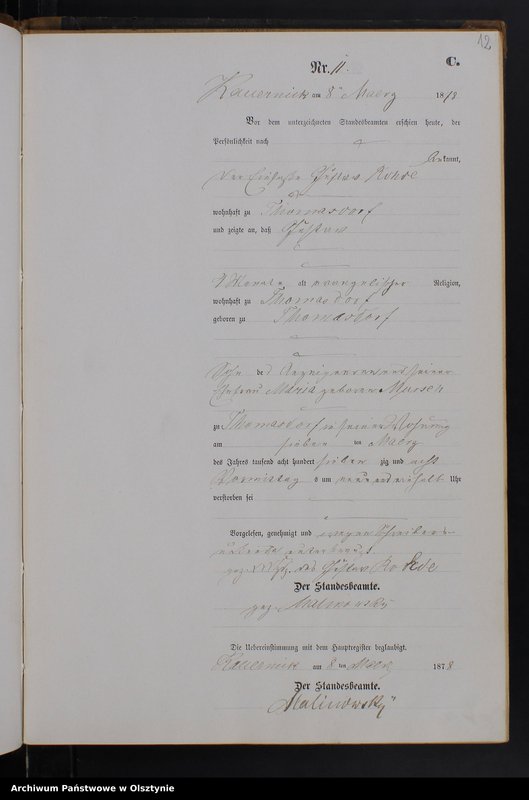 12
C.
Nr. 11.
Kauernick am 8ten Maerz 1878
Vor dem unterzeichneten Standesbeamten erschien heute, der
Persönlichkeit nach
bekannt,
der Gustav Rohde
wohnhaft zu Thomasdorf
und zeigte an, daß Gustav
alt evangelischer Religion,
wohnhaft zu Thomasdorf
geboren zu Thomasdorf
Sohn des Anzeigers und seiner
Ehefrau Maria geborene
zu Thomasdorf in seiner Wohnung
am sieben ten Maerz
des Jahres tausend acht hundert sieben zig und acht
Vormittag s um Uhr
verstorben sei
Vorgelesen, genehmigt und wegen Schreibens-
gez. des Gustav Rohde
Der Standesbeamte.
gez. Malinowsky
Die Uebereinstimmung mit dem Hauptregister beglaubigt.
Kauernick am 8 ten Maerz 1878
Der Standesbeamte.
Malinowsky
Archiwum Państwowe w Olsztynie